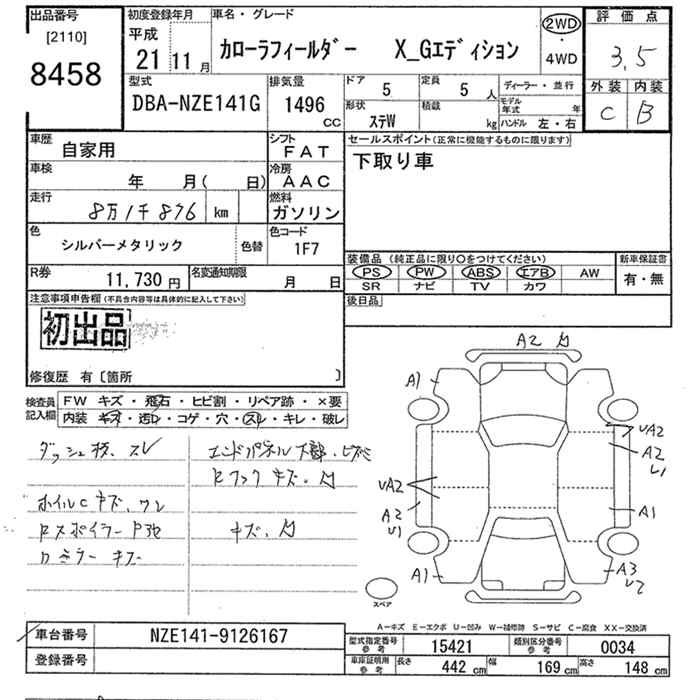 出品番号
[2110]
8458
初度登録年月
平成
21 11 月
車名・グレード
カローラフィールダー X_Gエディション
2WD
・
4WD
評価点
3.5
外装 内装
C B
型式
DBA-NZE141G
排気量
1496
CC
ドア 5
定員 5 人
形状 ステW
積載 kg
ディーラー・並行
モデル年式 年
ハンドル 左・右
車歴 自家用
シフト FAT
車検 年 月( 日)
冷房 AAC
走行 8万1千876 km
燃料 ガソリン
色 シルバーメタリック 色替
色コード 1F7
R券 11,730 円
名変通知期限 月 日
セールスポイント(正常に機能するものに限ります)
下取り車
装備品(純正品に限り○をつけてください)
PS PW ABS エアB AW
SR ナビ TV カワ
新車保証書
有・無
後日品
注意事項申告欄(不具合内容等は具体的に記入して下さい)
初出品
修復歴 有〔箇所 〕
検査員記入欄
FW キズ・飛石・ヒビ割・リペア跡・×要
内装 キズ・汚レ・コゲ・穴・スレ・キレ・破レ
スレ
ホイルC キズ、ワレ
Rスポイラー
ミラー キズ
エンドパネル下部、
Rフック キズ、
キズ、
A2
A1
UA2
A2
U1
UA2
A2
U1
A1
A1
A3
U2
スペア
A－キズ E－エクボ U－凹み W－補修跡 S－サビ C－腐食 XX－交換済
車台番号 NZE141-9126167
登録番号
型式指定番号 参考 15421
類別区分番号 参考 0034
車庫証明用 参考 長さ 442 cm 幅 169 cm 高さ 148 cm